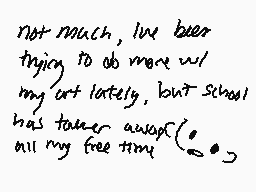 not much, Ive been
trying to do more w/
my art lately, but school
has taken away
all my free time